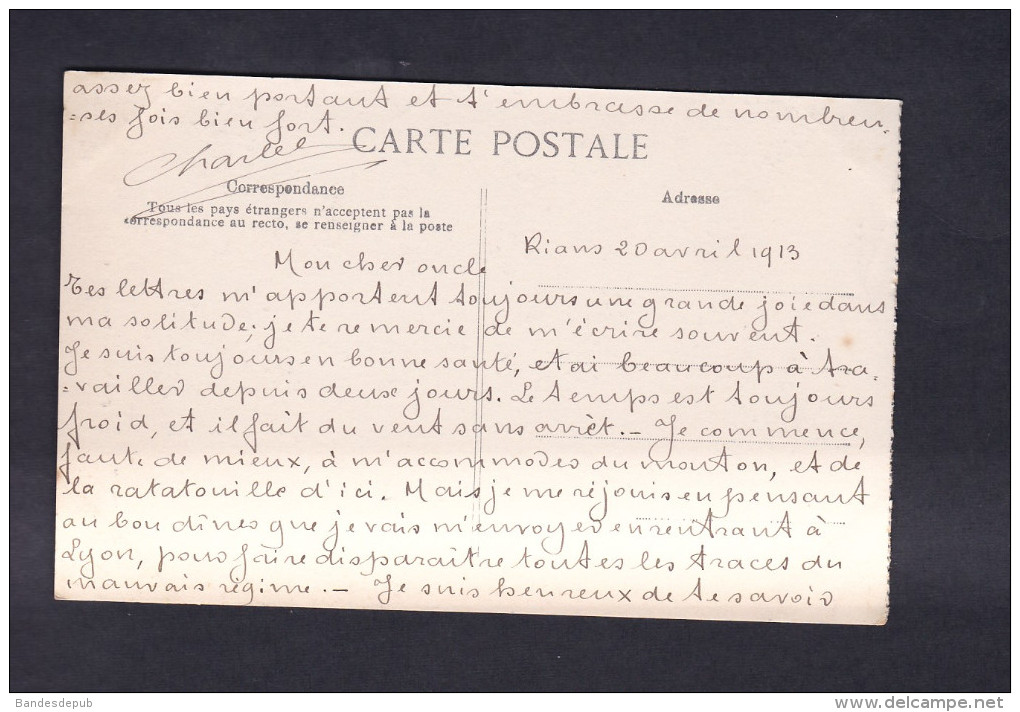 assez bien portant et t'embrasse de nombreu-
=ses fois bien fort.
CARTE POSTALE
Charles
Correspondance
Tous les pays étrangers n'acceptent pas la
correspondance au recto, se renseigner à la poste
Adresse
Rians 20 avril 1913
Mon cher oncle
Tes lettres m'apportent toujours une grande joie dans
ma solitude, je te remercie de m'écrire souvent.
Je suis toujours en bonne santé, et ai beaucoup à tra-
=vailler depuis deux jours. Le temps est toujours
froid, et il fait du vent sans arrêt. - Je commence,
faute de mieux, à m'accommoder du mouton, et de
la ratatouille d'ici. Mais je me réjouis en pensant
au bon dîner que je vais m'envoyer en rentrant à
Lyon, pour faire disparaître toutes les traces du
mauvais régime. - Je suis heureux de te savoir
Bandesdepub
www.delcampe.net